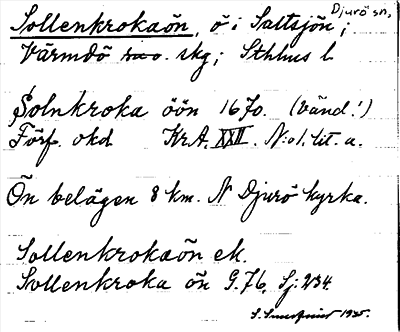 Djurö sn,
Sollenkrokaön, ö i Saltsjön;
Värmdö skg; Sthlms l.
Solnkroka öön 1670. (vänd!)
Förf. okd KrA. XXII. N:o1. lit. a.
Ön belägen 8 km. N Djurö kyrka.
Sollenkrokaön ek.
Sollenkroka ön G.76, Sj:234.
1935.